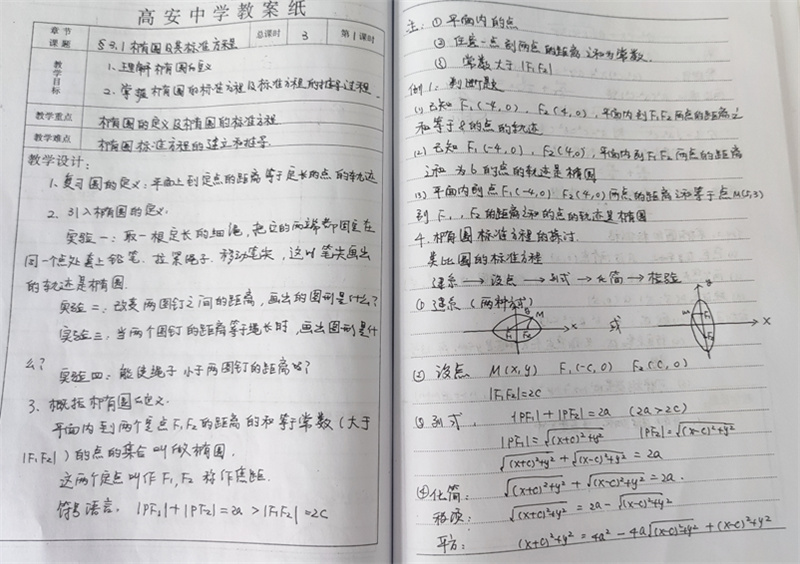 高安中学教案纸
章节课题 §3.1 椭圆及其标准方程 总课时 3 第1课时
教学目标 1、理解椭圆的定义
2、掌握椭圆的标准方程及标准方程的推导过程.
教学重点 椭圆的定义及椭圆的标准方程
教学难点 椭圆标准方程的建立和推导.
教学设计:
1、复习圆的定义:平面上到定点的距离等于定长的点的轨迹
2、引入椭圆的定义.
实验一:取一根定长的细绳,把它的两端都固定在
同一个点处套上铅笔、拉紧绳子、移动笔尖,这时笔尖画出
的轨迹是椭圆.
实验二:改变两图钉之间的距离,画出的图形是什么?
实验三:当两个图钉的距离等于绳长时,画出图形是什
么?
实验四:能使绳子小于两图钉的距离吗?
3、概括椭圆定义.
平面内到两个定点F₁F₂的距离的和等于常数(大于
|F₁F₂|)的点的集合叫做椭圆.
这两个定点叫作F₁,F₂ 称作焦距.
符号语言. |PF₁|+|PF₂|=2a>|F₁F₂|=2c
注:① 平面内的点
② 任意一点到两点的距离之和为常数.
③ 常数大于|F₁F₂|
例1、判断题
(1) 已知 F₁(-4,0),F₂(4,0),平面内到F₁F₂两点的距离之
和等于8的点的轨迹
(2) 已知 F₁(-4,0),F₂(4,0),平面内到F₁F₂两点的距离
之和为6的点的轨迹是椭圆
(3) 平面内到点F₁(-4,0) F₂(4,0)两点的距离之和等于点M(5,3)
到F₁、F₂的距离之和的点的轨迹是椭圆
4、椭圆标准方程的探讨.
类比圆的标准方程
建系→设点→列式→化简→检验
① 建系(两种方式)
F₁ F₂ B M x 或 B M F₁ F₂ X
② 设点 M(x,y) F₁(-c,0) F₂(c,0)
|F₁F₂|=2c
③ 列式. |PF₁|+|PF₂|=2a (2a>2c)
|PF₁|=√(x+c)²+y² |PF₂|=√(x-c)²+y²
√(x+c)²+y² + √(x-c)²+y² = 2a
④ 化简: √(x+c)²+y² + √(x-c)²+y² = 2a.
移项: √(x+c)²+y² = 2a - √(x-c)²+y²
平方: (x+c)²+y² = 4a² - 4a√(x-c)²+y² + (x-c)²+y²